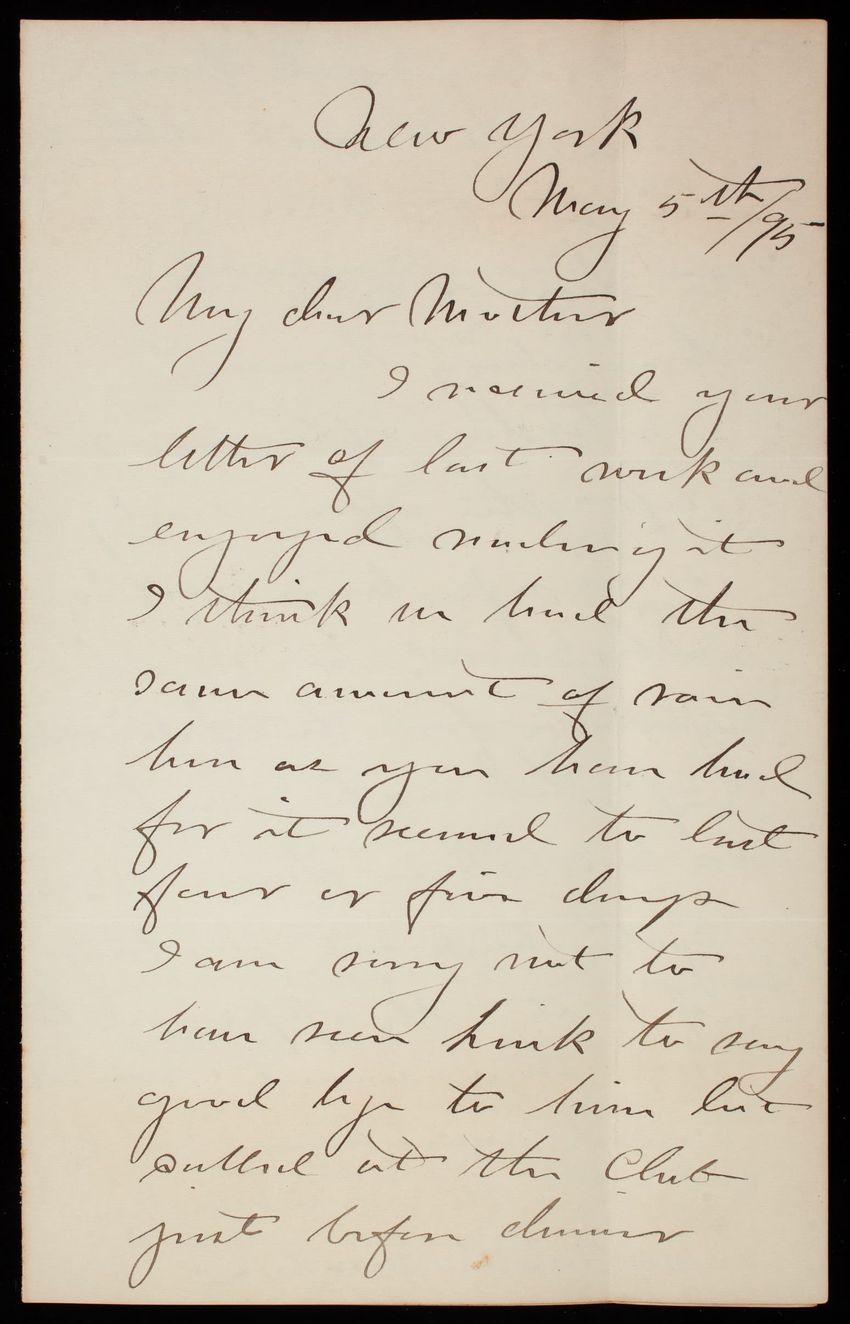 New York
May 5th/95
My dear Mother
I received your
letter of last week and
enjoyed reading it
I think we had the
same amount of rain
here as you have had
for it seemed to last
four or five days
I am sorry not to
have seen to say
good bye to him but
called at the Club
just before dinner